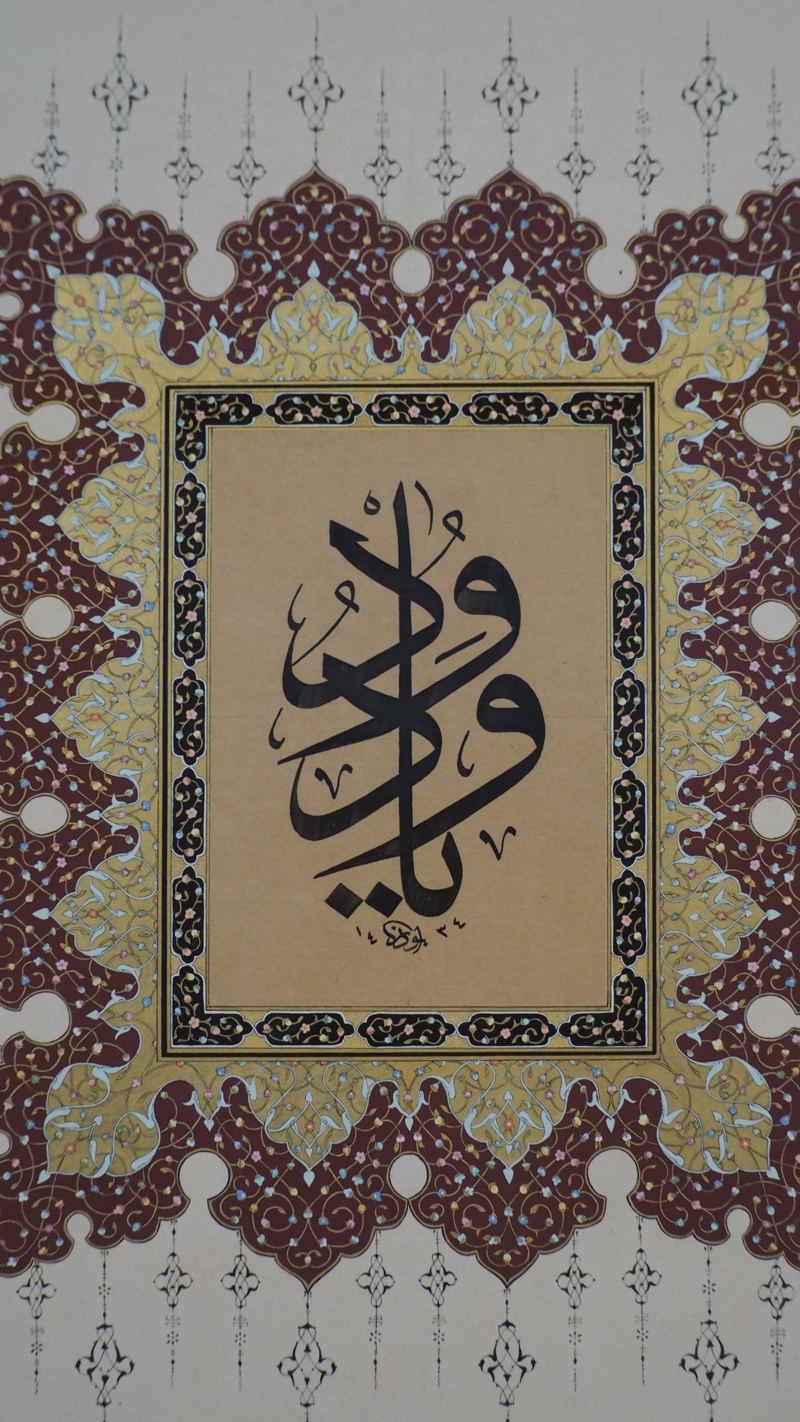 يا ودود
١٤ ٣٤